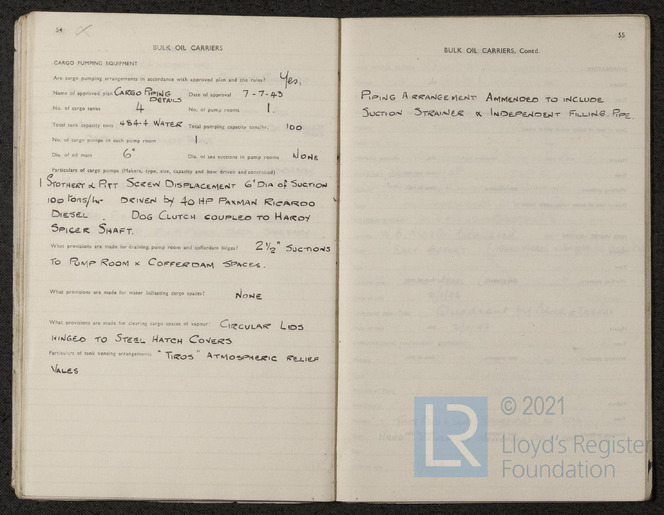 54
BULK OIL CARRIERS
CARGO PUMPING EQUIPMENT
Are cargo pumping arrangements in accordance with approved plan and the rules? Yes.
Name of approved plan CARGO PIPING DETAILS Date of approval 7-7-43
No. of cargo tanks 4 No. of pump rooms 1.
Total tank capacity tons 484.4 WATER Total pumping capacity tons/hr. 100
No. of cargo pumps in each pump room 1
Dia. of oil main 6" Dia. of sea suctions in pump rooms NONE
Particulars of cargo pumps (Makers, type, size, capacity and how driven and controlled)
1 STOTHERT & PITT SCREW DISPLACEMENT 6" DIA OF SUCTION
100 TONS/Hr DRIVEN BY 40 HP PAXMAN RICARDO
DIESEL. DOG CLUTCH COUPLED TO HARDY
SPICER SHAFT.
What provisions are made for draining pump room and cofferdam bilges? 2½" SUCTIONS
TO PUMP ROOM & COFFERDAM SPACES.
What provisions are made for water ballasting cargo spaces? NONE
What provisions are made for clearing cargo spaces of vapour? CIRCULAR LIDS
HINGED TO STEEL HATCH COVERS
Particulars of tank venting arrangements "TIROS" ATMOSPHERIC RELIEF
VALES
55
BULK OIL CARRIERS, Contd.
PIPING ARRANGEMENT AMMENDED TO INCLUDE
SUCTION STRAINER & INDEPENDENT FILLING PIPE.
LR
© 2021
Lloyd's Register
Foundation